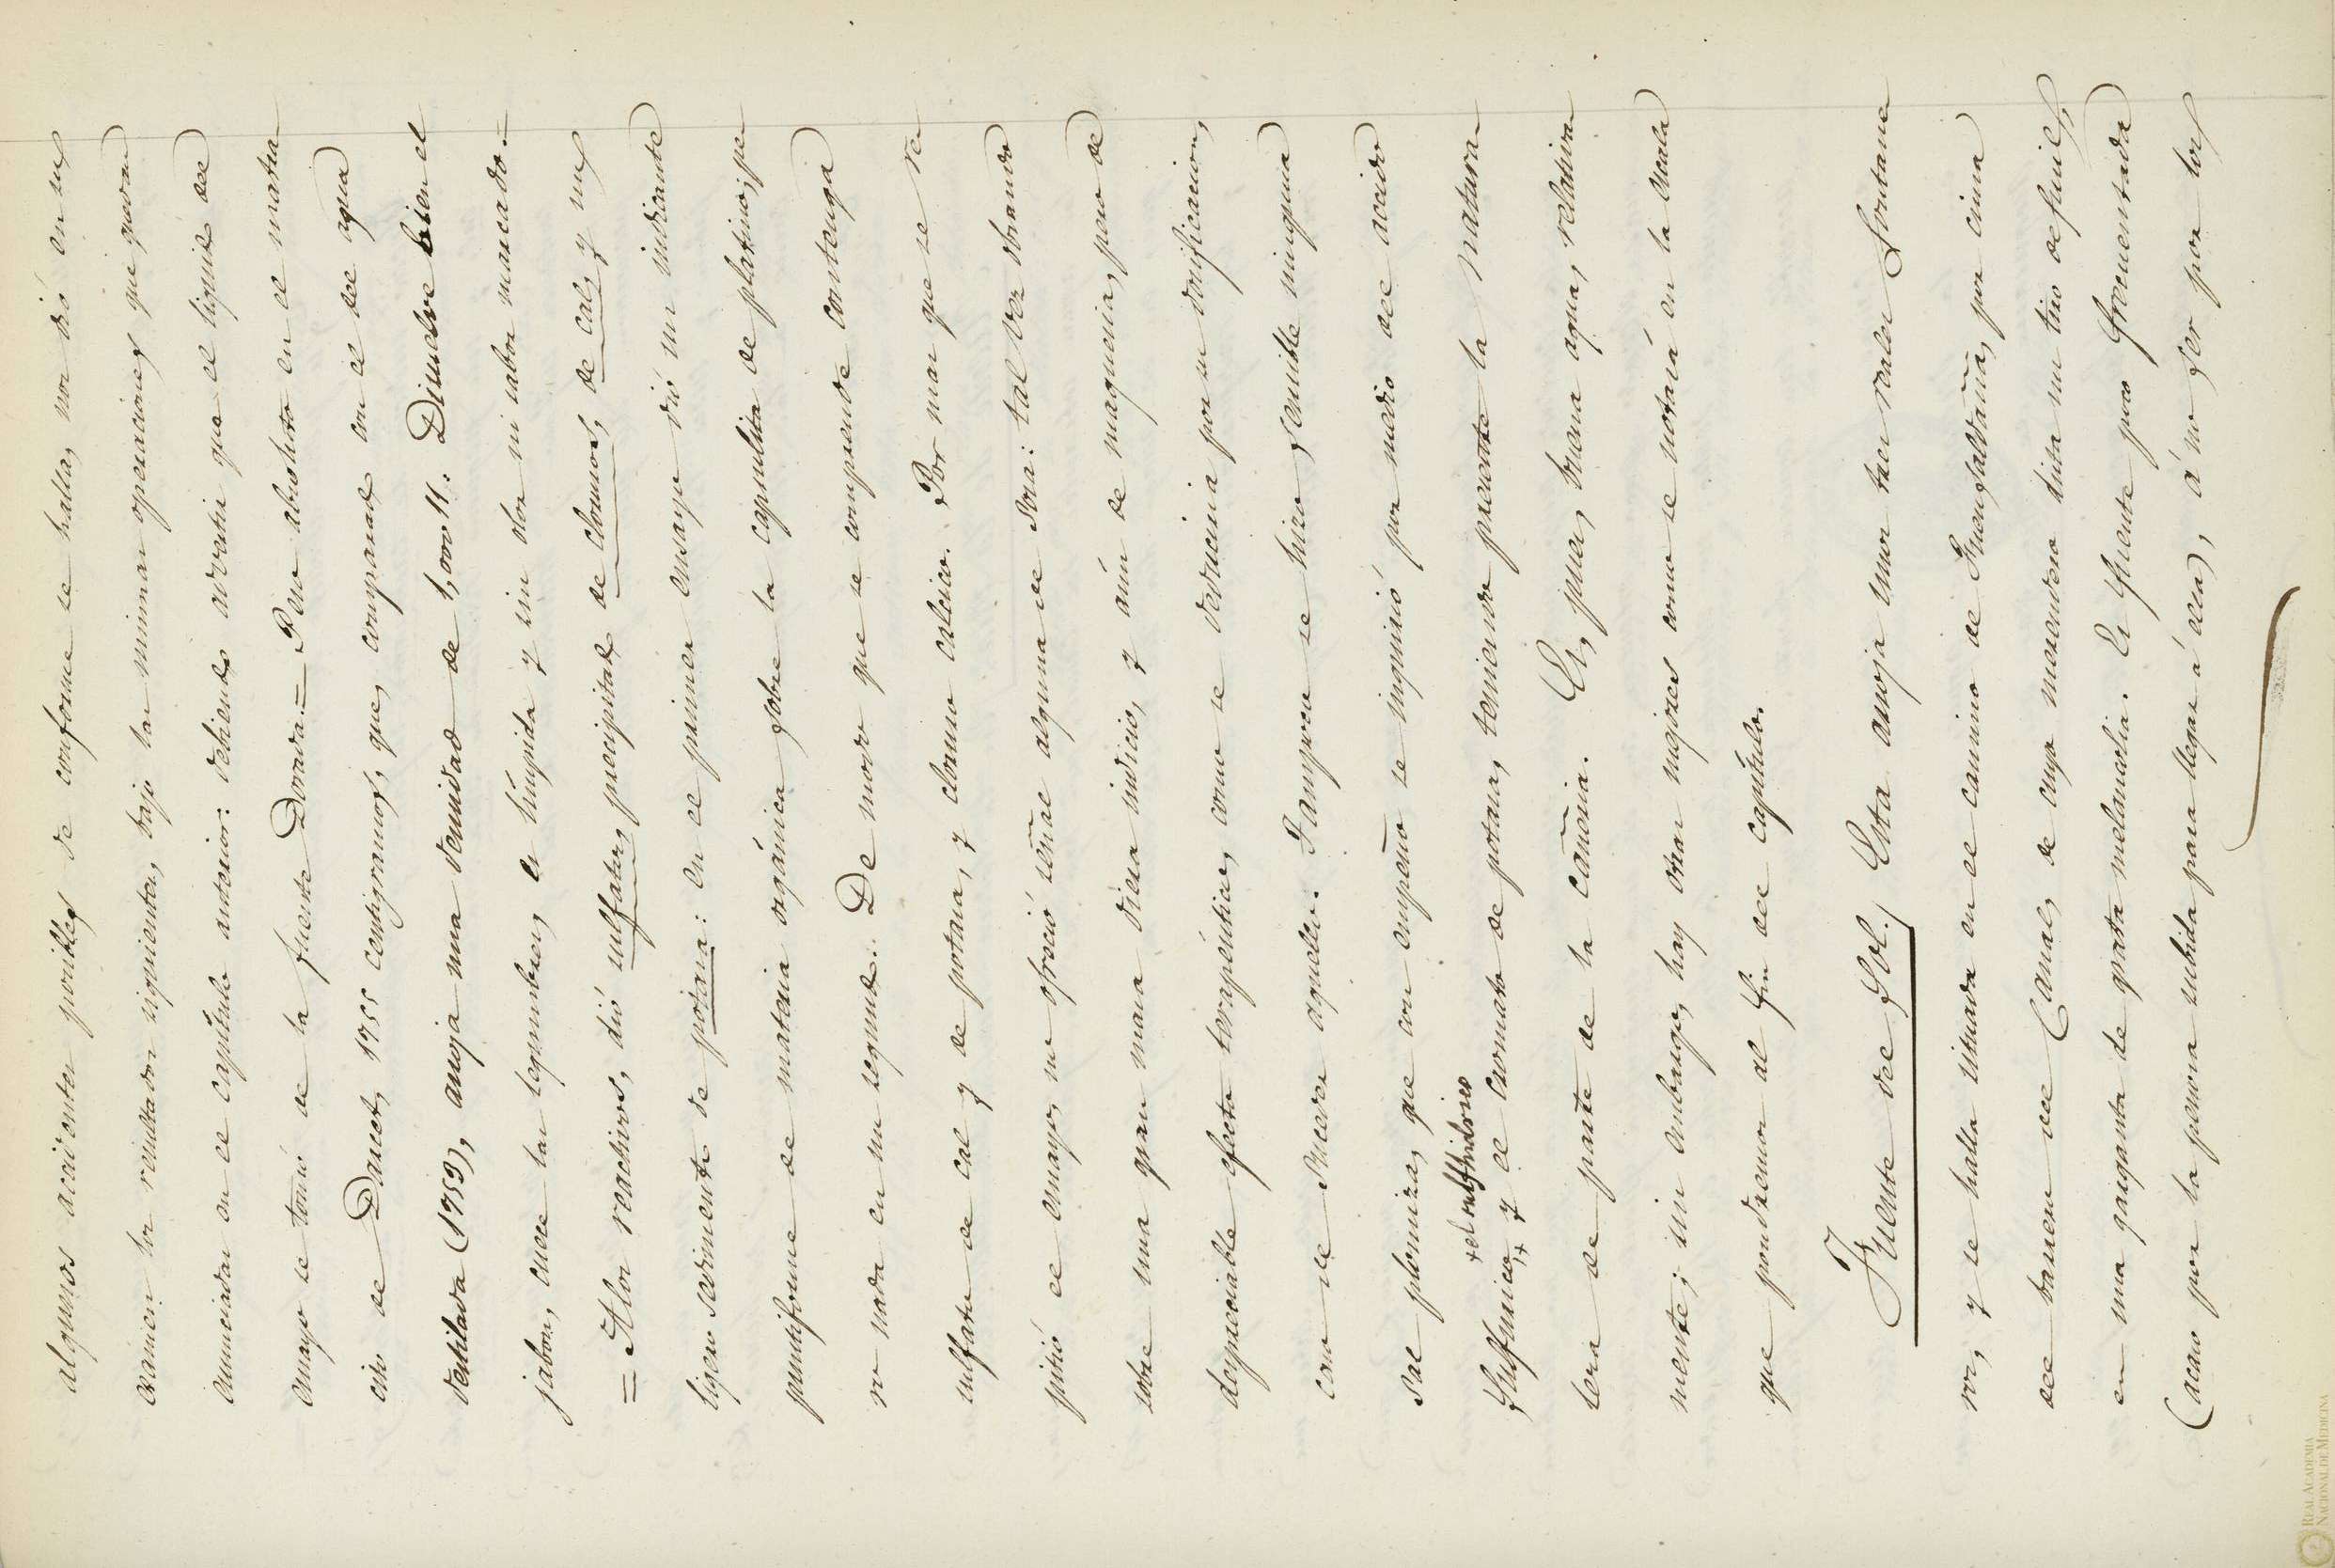 algunos accidentes posibles de conforme se halla, nos dió en su
exámen los resultados siguientes, bajo las mismas operaciones que quedan
enunciadas en el capítulo anterior: debiendo advertir que el líquido del
ensayo se tomó de la fuente Dorada. = Peso absoluto en el matra
cito de Darcet, 1955 centígramos, que, comparado con el del agua
destilada (1953), arroja una densidad de 1,0011. Disuelve bien el
jabon, cuece las legumbres, es límpida y sin olor ni sabor marcado. =
= A los reactivos, dió sulfatos, precipitado de cloruros, de cal, y un
ligero sedimento de potasa: en el primer ensayo dió un indicante
puntiforme de materia orgánica sobre la capsulita de platino; pe
ro nada en un segundo. De modo que se comprende contenga
sulfato de cal y de potasa, y cloruro cálcico. Por mas que se re
pitió el ensayo, no ofreció señal alguna de sosa: tal vez obrando
sobre una gran masa diera indicio, y aún de magnesia, pero de
despreciable efecto terapéutico, como se deduciria por su dosificacion,
como de suceder aquello. Tampoco se hizo sensible ninguna
sal plomiza, que con empeño se inquirió por medio del acido
+ el sulfhidrico
Sulfurico, + y el cromato de potasa, teniendo presente la natura
leza de parte de la cañeria. Es, pues, buena agua, relativa
mente; sin embargo, hay otras mejores como se notará en la escala
que pondremos al fin del capítulo.
Fuente del Sol. Esta arroja unos tres reales fontane
ros, y se halla situada en el camino de Fuensaldaña, por cima
del barreno del Canal, de cuyo merendero dista un tiro de fusil,
en una garganta de grata melancolia. Es fuente poco frecuentada
(acaso por la penosa subida para llegar á ella), á no ser por los
REAL ACADEMIA
NACIONAL DE MEDICINA